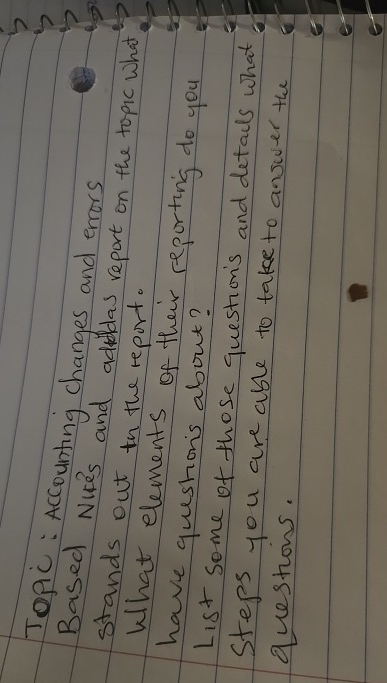 Topic: Accounting changes and errors
Based Nike's and addidas report on the topic what
stands out in the report.
What elements of their reporting do you
have questions about?
List some of those questions and details what
steps you are able to take to answer the
questions.